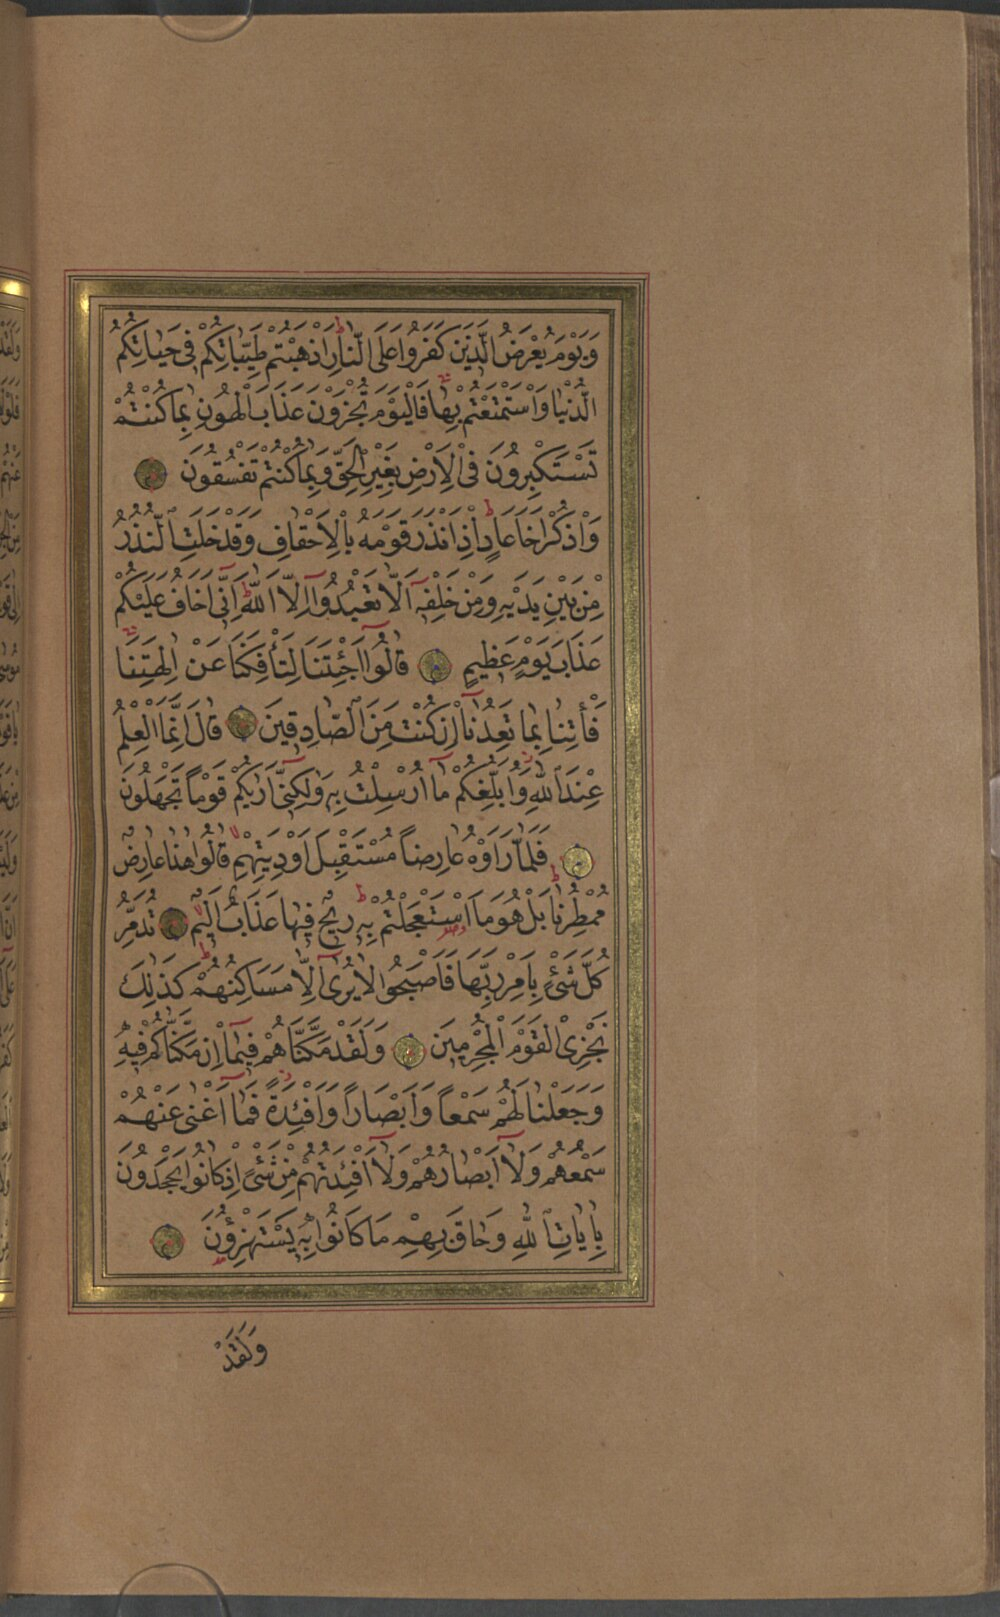 وَيَوْمَ يُعْرَضُ الَّذِينَ كَفَرُوا عَلَى النَّارِ اَذْهَبْتُمْ طَيِّبَاتِكُمْ فِى حَيَاتِكُمُ
الدُّنْيَا وَاسْتَمْتَعْتُمْ بِهَا فَالْيَوْمَ تُجْزَوْنَ عَذَابَ الْهُونِ بِمَا كُنْتُمْ
تَسْتَكْبِرُونَ فِى الْاَرْضِ بِغَيْرِ الْحَقِّ وَبِمَا كُنْتُمْ تَفْسُقُونَ
وَاذْكُرْ اَخَا عَادٍ اِذْ اَنْذَرَ قَوْمَهُ بِالْاَحْقَافِ وَقَدْ خَلَتِ النُّذُرُ
مِنْ بَيْنِ يَدَيْهِ وَمِنْ خَلْفِهِ اَلَّا تَعْبُدُوا اِلَّا اللّٰهَ اِنِّى اَخَافُ عَلَيْكُمْ
عَذَابَ يَوْمٍ عَظِيمٍ قَالُوا اَجِئْتَنَا لِتَأْفِكَنَا عَنْ اٰلِهَتِنَا
فَأْتِنَا بِمَا تَعِدُنَا اِنْ كُنْتَ مِنَ الصَّادِقِينَ قَالَ اِنَّمَا الْعِلْمُ
عِنْدَ اللّٰهِ وَاُبَلِّغُكُمْ مَا اُرْسِلْتُ بِهِ وَلٰكِنِّى اَرٰيكُمْ قَوْمًا تَجْهَلُونَ
فَلَمَّا رَاَوْهُ عَارِضًا مُسْتَقْبِلَ اَوْدِيَتِهِمْ قَالُوا هٰذَا عَارِضٌ
مُمْطِرُنَا بَلْ هُوَ مَا اسْتَعْجَلْتُمْ بِهِ رِيحٌ فِيهَا عَذَابٌ اَلِيمٌ تُدَمِّرُ
كُلَّ شَىْءٍ بِاَمْرِ رَبِّهَا فَاَصْبَحُوا لَا يُرٰى اِلَّا مَسَاكِنُهُمْ كَذٰلِكَ
نَجْزِى الْقَوْمَ الْمُجْرِمِينَ وَلَقَدْ مَكَّنَّاهُمْ فِيمَا اِنْ مَكَّنَّاكُمْ فِيهِ
وَجَعَلْنَا لَهُمْ سَمْعًا وَاَبْصَارًا وَاَفْئِدَةً فَمَا اَغْنٰى عَنْهُمْ
سَمْعُهُمْ وَلَا اَبْصَارُهُمْ وَلَا اَفْئِدَتُهُمْ مِنْ شَىْءٍ اِذْ كَانُوا يَجْحَدُونَ
بِاٰيَاتِ اللّٰهِ وَحَاقَ بِهِمْ مَا كَانُوا بِهِ يَسْتَهْزِؤُنَ
وَلَقَدْ